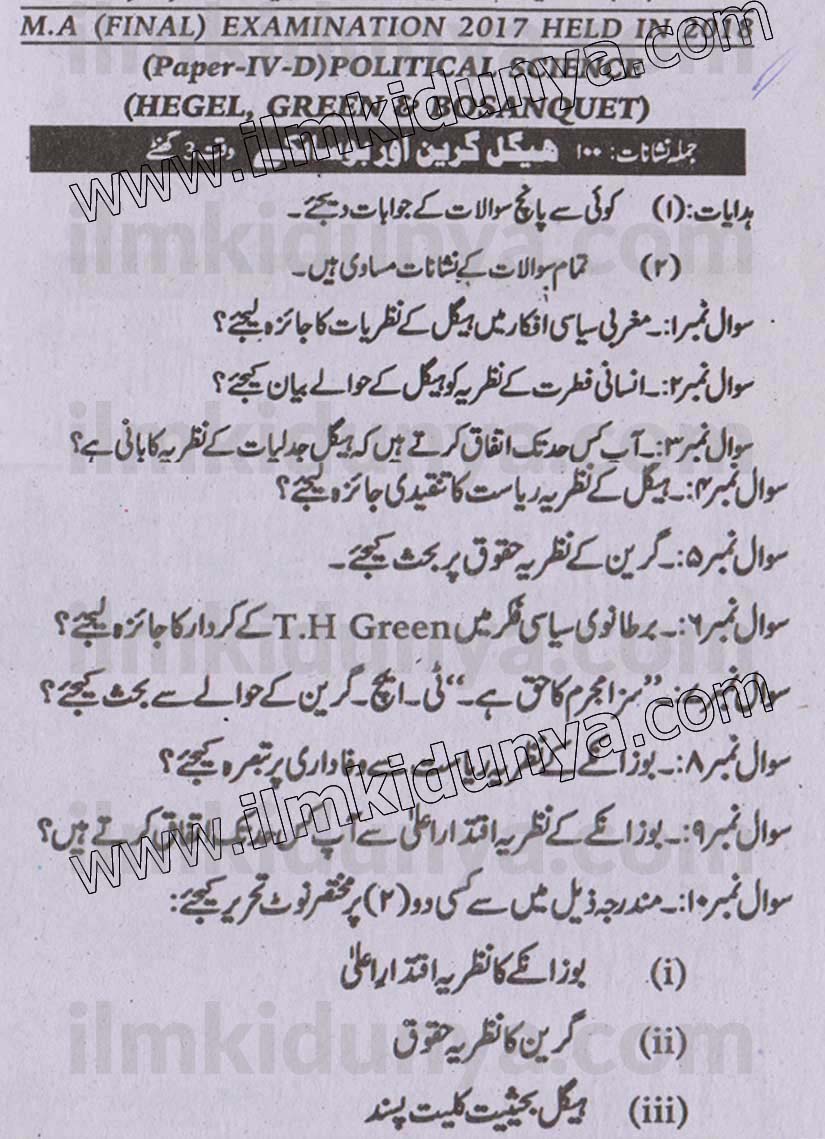 M.A (FINAL) EXAMINATION 2017 HELD IN 2018
(Paper-IV-D)POLITICAL SCIENCE
(HEGEL, GREEN & BOSANQUET)
جملہ نشانات: ۱۰۰ ہیگل گرین اور وقت 3 گھنٹے
ہدایات: (۱) کوئی سے پانچ سوالات کے جوابات دیجئے۔
(۲) تمام سوالات کے نشانات مساوی ہیں۔
سوال نمبر۱:۔ مغربی سیاسی افکار میں ہیگل کے نظریات کا جائزہ لیجئے؟
سوال نمبر۲:۔ انسانی فطرت کے نظریہ کو ہیگل کے حوالے بیان کیجئے؟
سوال نمبر۳:۔ آپ کس حد تک اتفاق کرتے ہیں کہ ہیگل جدلیات کے نظریہ کا بانی ہے؟
سوال نمبر۴:۔ ہیگل کے نظریہ ریاست کا تنقیدی جائزہ لیجئے؟
سوال نمبر۵:۔ گرین کے نظریہ حقوق پر بحث کیجئے۔
سوال نمبر۶:۔ برطانوی سیاسی فکر میں T.H Green کے کردار کا جائزہ لیجئے؟
سوال نمبر۷:۔ ”سزا مجرم کا حق ہے۔“ ٹی۔ ایچ۔ گرین کے حوالے سے بحث کیجئے؟
سوال نمبر۸:۔ بوزانکے کے نظریہ ریاست سے وفاداری پر تبصرہ کیجئے؟
سوال نمبر۹:۔ بوزانکے کے نظریہ اقتدار اعلیٰ سے آپ کس حد تک اتفاق کرتے ہیں؟
سوال نمبر۱۰:۔ مندرجہ ذیل میں سے کسی دو (۲) پر مختصر نوٹ تحریر کیجئے:
(i) بوزانکے کا نظریہ اقتدارِ اعلیٰ
(ii) گرین کا نظریہ حقوق
(iii) ہیگل بحیثیت کلیت پسند
www.ilmkidunya.com
www.ilmkidunya.com
ilmkidunya.com
ilmkidunya.com
ilmkidunya.com
ilmkidunya.com
ilmkidunya.com